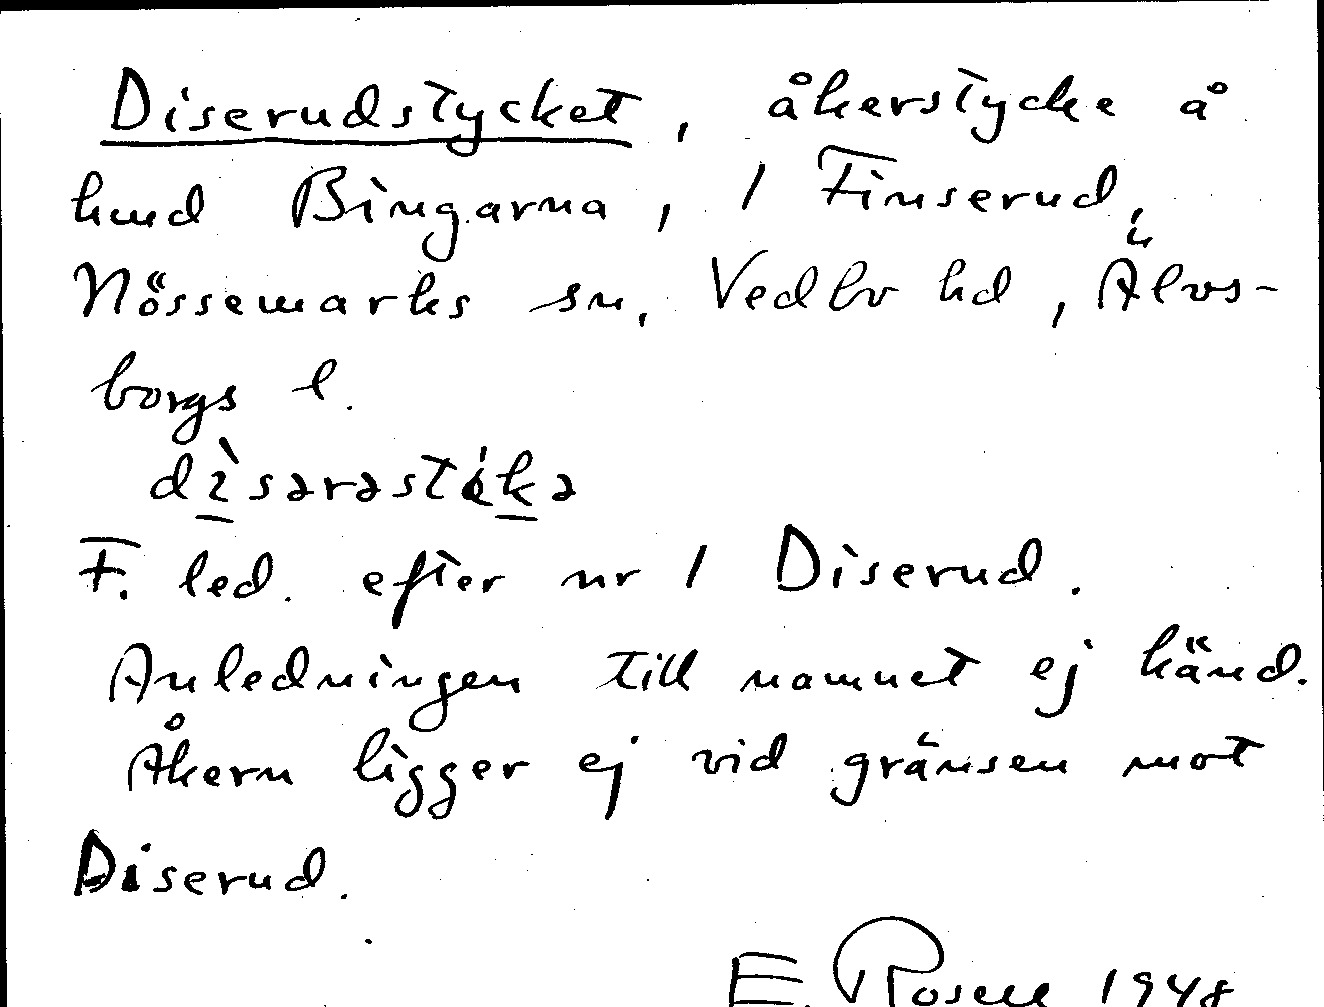 Diserudstycket, åkerstycke å
hmd Bingarna, 1 Finserud,
Nössemarks sn, Vedbo hd, Älvs-
borgs l.
F. led. efter nr 1 Diserud.
Anledningen till namnet ej känd.
Åkern ligger ej vid gränsen mot
Diserud.
E. Rosell 1948